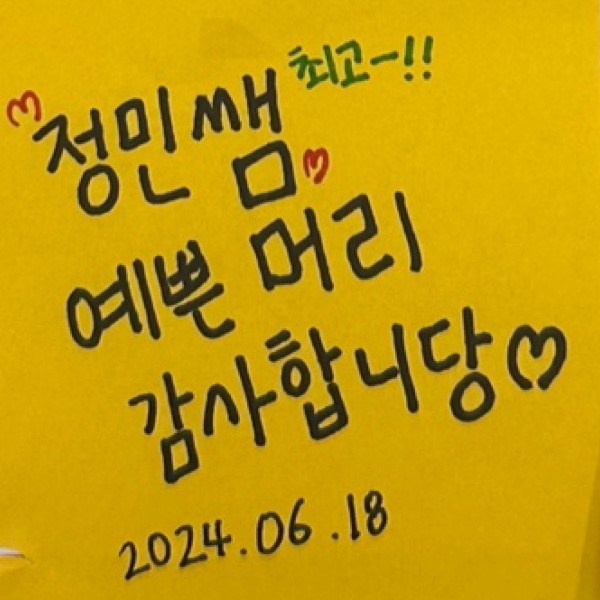 정민쌤 최고~!!
예쁜 머리
감사합니당♡
2024.06.18